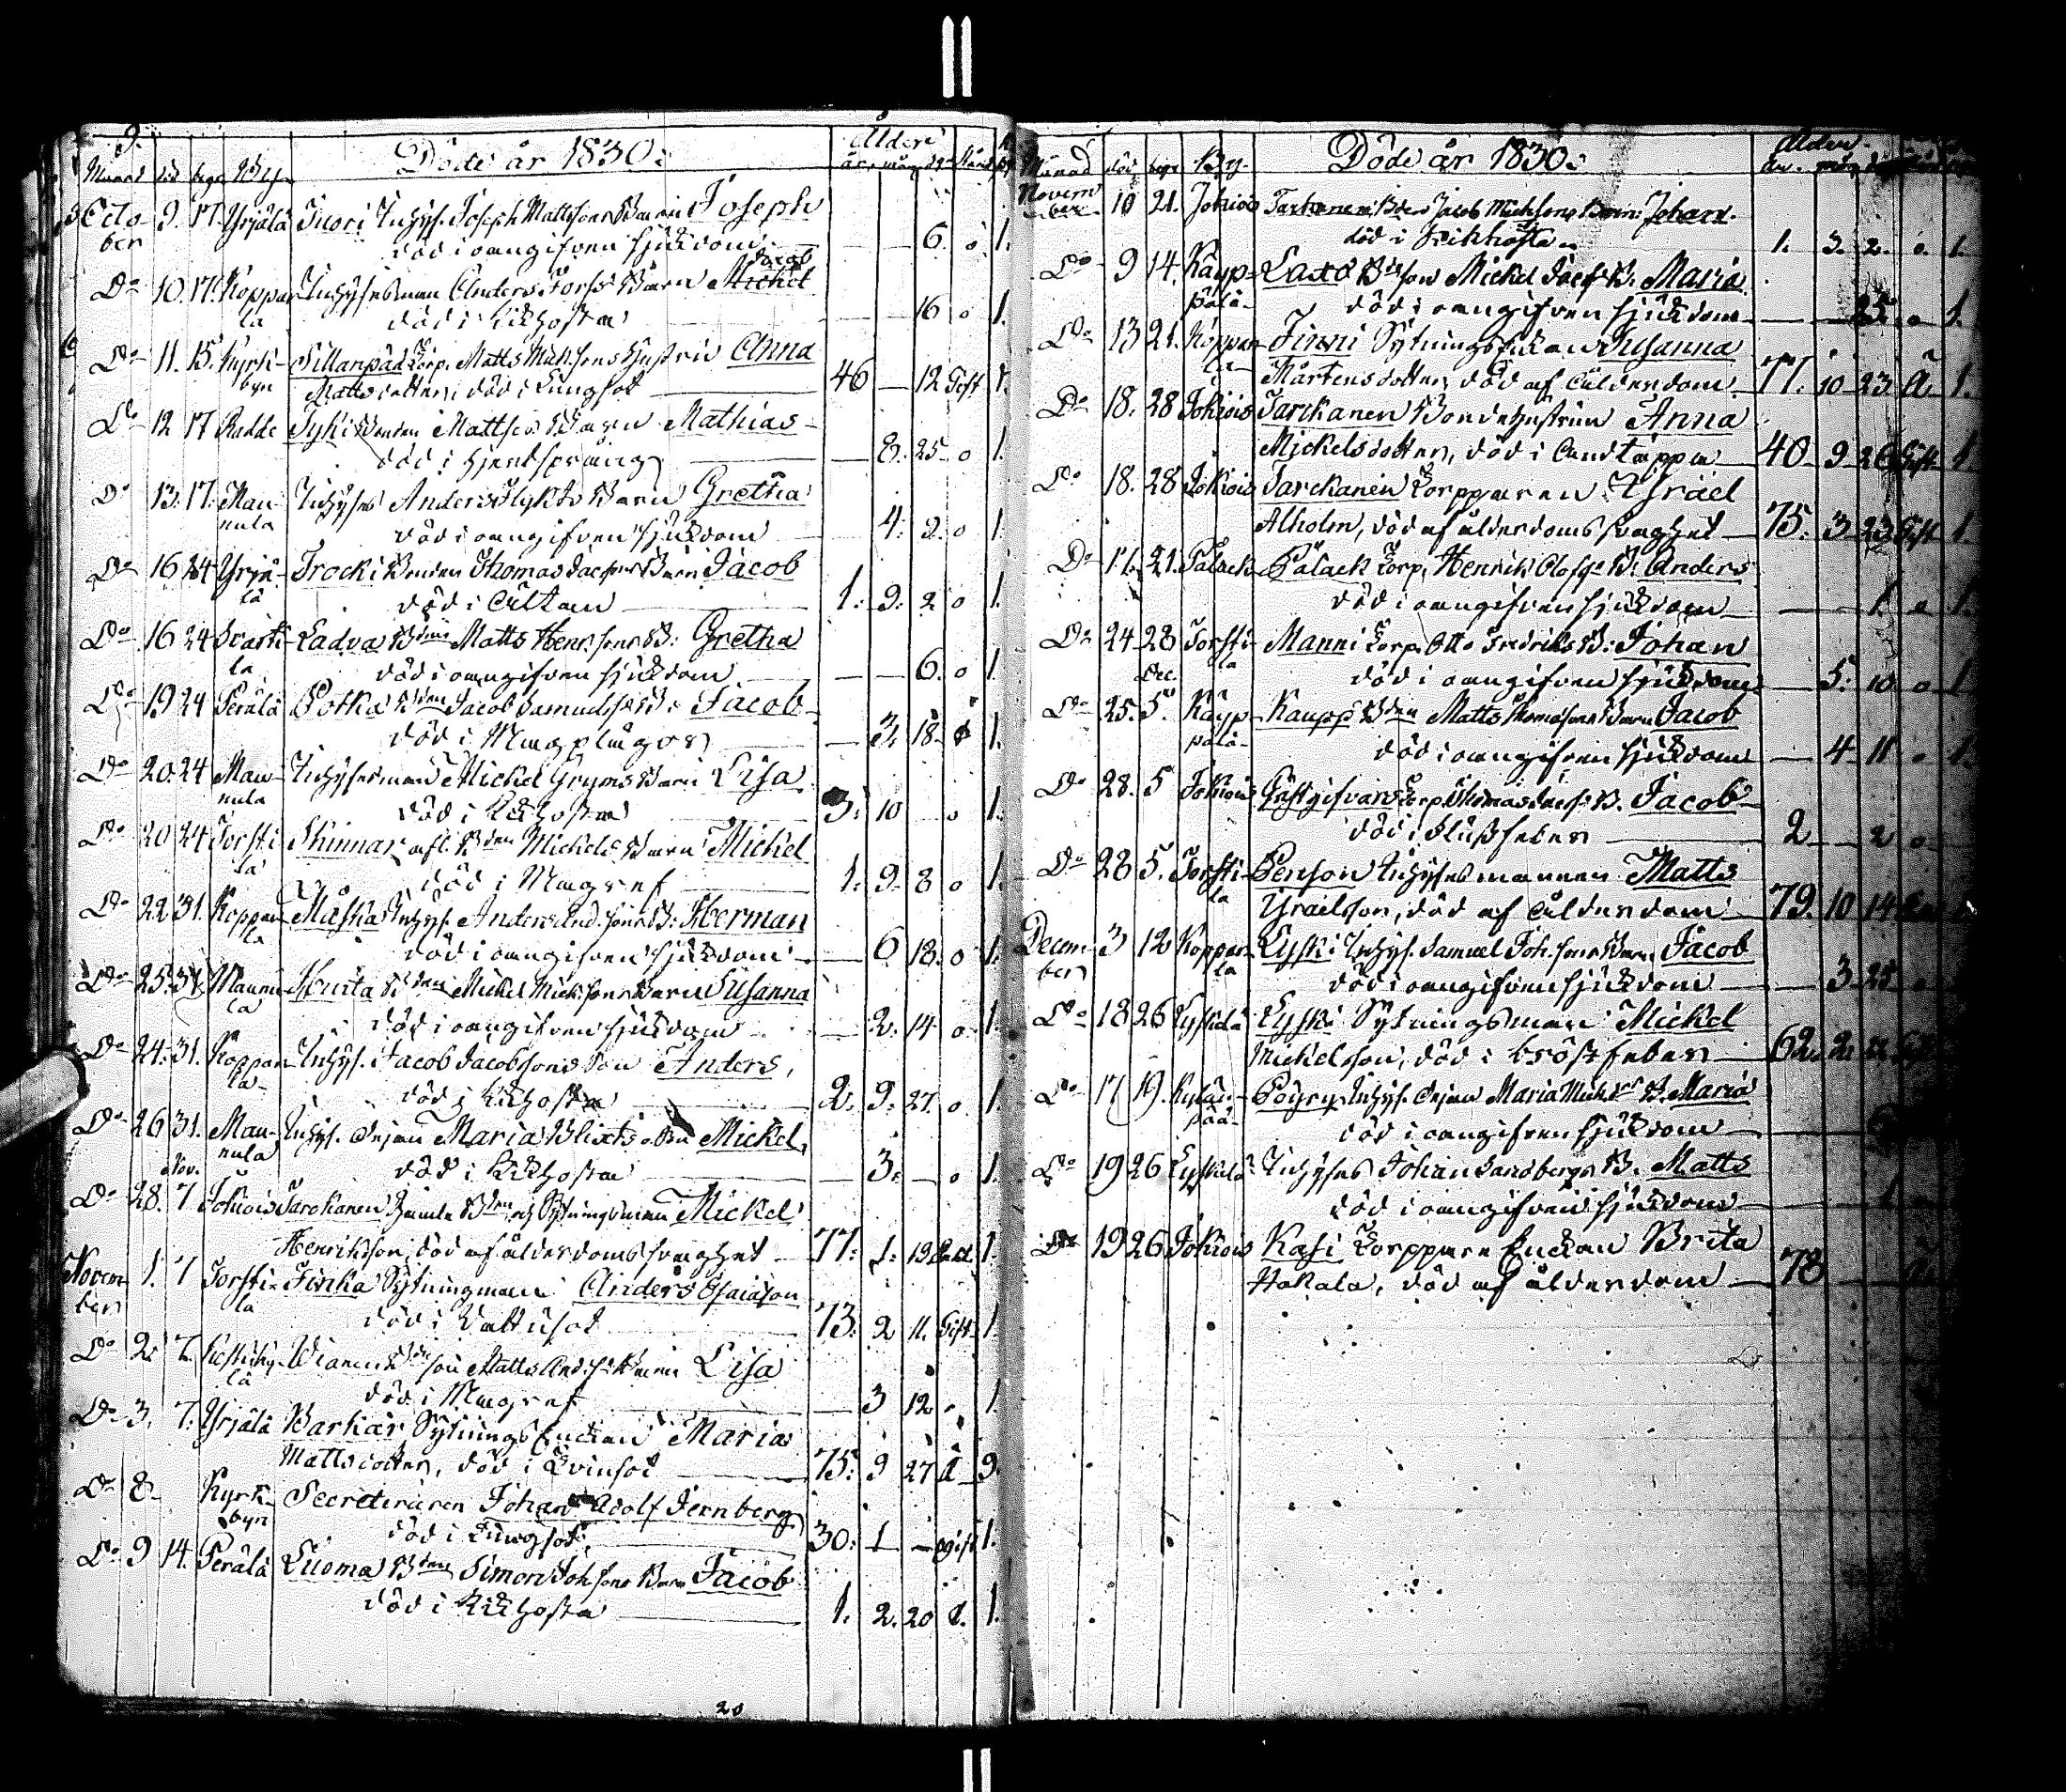 Döde år 1830. Ålder
Månad död begr By år mån dgr
October 9. 17. Yrjälä Tuori Inhys. Joseph Mattssons Barn Joseph
död i oangifven sjukdom 6. o 1.
Do 10. 17. Koppar Inhysesman Anders Fors Barn Michel Jacob
la död i Kikhosta 16 o 1.
Do 11. 15. Kyrko- Sillanpää Torp. Matts Mich:sons hustru Anna
byn Mattsdotter, död i Lungsot 46 — 12 Gift 1.
Do 12 17 Radde Syki Bonden Mattsses Barn Mathias
död i hjertsprång — 8. 25 o 1.
Do 13. 17. Man- Inhyses Anders Flykts Barn Gretha
nula död i oangifven sjukdom 4. 2. o 1.
Do 16 24 Yrjä- Trocki Bonden Thomas Jac:sons Barn Jacob
lä död i Ältan 1. 9. 2 o 1.
Do 16 24 Ladva Bdens Matts Henr:sons B: Gretha
la död i oangifven sjukdom — — 6. o 1.
Do 19 24 Perälä Potka Bden Jacob Samuelss B: Jacob
död i Magplågor — 3. 18 o 1.
Do 20 24 Man- Inhysesman Mickel Gryms Barn Lisa
nula död i Kikhosta 3. 10 o 1.
Do 20 24 Torsti Skinnar afl. Bden Mickels Barn Michel
la död i Magref 1. 9. 8 o 1.
Do 22 31. Koppar Maska Inhys. Anders And:sons B: Herman
la död i oangifven sjukdom — 6 18. o 1.
Do 25. 31. Mannu Bden Mickel Mick:sons Barn Susanna
la död i oangifven sjukdom — 2. 14. o 1.
Do 24. 31. Koppar Inhys. Jacob Jacobsons Son Anders,
la död i Kikhosta 2. 9. 27. o 1.
Do 26 31. Man- Inhys. Pigan Maria Blixts o Bn Mickel,
nula död i Kikhosta — 3. — o 1.
Nov.
Do 28. 7 Jokiois Jarckanen gamla Bden Sytningsman Mickel
Henrikson, död af ålderdoms svaghet 77. 1. 19 1.
Novem- 1. 7 Torsti- Finka Sytningman Anders Esaiason
ber la död i Vattusot 73. 2 11. Gift 1.
Do 2. 7. Bde son Matts And:s Barn Lisa
lä död i Magref — 3 12 . 1.
Do 3. 7. Yrjälä Barkar Sytnings Enckan Maria
Mattsdotter, död i Qvinsot 75. 9 27 Ä 9.
Do 8 Kyrk- Secreteraren Johan Adolf Jernberg
byn död i Lungsot, 30. 1 — ogift 1.
Do 9 14. Perälä Luoma Bdens Simon Joh:sons Barn Jacob
död i Kikhosta 1. 2. 20 o. 1.
20
Döde år 1830. Ålder
Månad död begr By
Novem-ber 10 21. Jokiois Jarckanen Bden Jacob Michsons Barn: Johan
död i Kikhosta 1. 3. 2. o. 1.
Do 9 14. Käyp- Laxo Bdeson Mickel Jac:s B. Maria
pälä död i oangifven sjukdom — o 1.
Do 13 21. Koppar Finni Sytningsenckan Susanna
la Mårtensdotter, död af Ålderdom 77. 10 23 Ä 1.
Do 18. 28 Jokiois Jarckanen Bondehustrun Anna
Mickelsdotter, död i Andtäppa 40 9 26 Gift 1
Do 18. 28 Jokiois Jarckanen Torpparen Israel
Alholm, död af ålderdoms svaghet 75. 3 23 Gift 1.
Do 17. 21. Palack Palack Torp. Henrik Olofs: B: Anders
död i oangifven sjukdom 1. o 1.
Do 24 28 Torsti- Manni Torp. Otto Fredriks B: Johan
Dec. la död i oangifven sjukdom 5. 10 o 1
Do 25. 5. Käyp- Kaupp Bden Matts Thomasons Barn Jacob
pälä död i oangifven sjukdom 4 11 o 1.
Do 28. 5 Jokiois Gästgifvars Torp. Thomas Jac:s B. Jacob
död i Flussfeber 2 2 o
Do 28 5. Torsti- Penson Inhysesmannen Matts
la Israelson, död af Ålderdom 79. 10 14
Decem- 3 12 Koppar- Eyski Inhys. Samuel Joh:sons Barn Jacob
ber la död i oangifven sjukdom 3 25 o
Do 18 26 Eyskälä Eyski Sytningsman Mickel
Mickelson, död i bröstfeber 62. 2.
Do 17 19. Kylän- Inhys. Pigan Maria Mich:dr B. Maria
pää död i oangifven sjukdom
Do 19 26 Eyskälä Inhyses Johan Sandbergs B. Matts
död i oangifven sjukdom 1.
Do 19 26 Jokiois Kasi Torppare Enckan Brita
Hakala, död af ålderdom 78